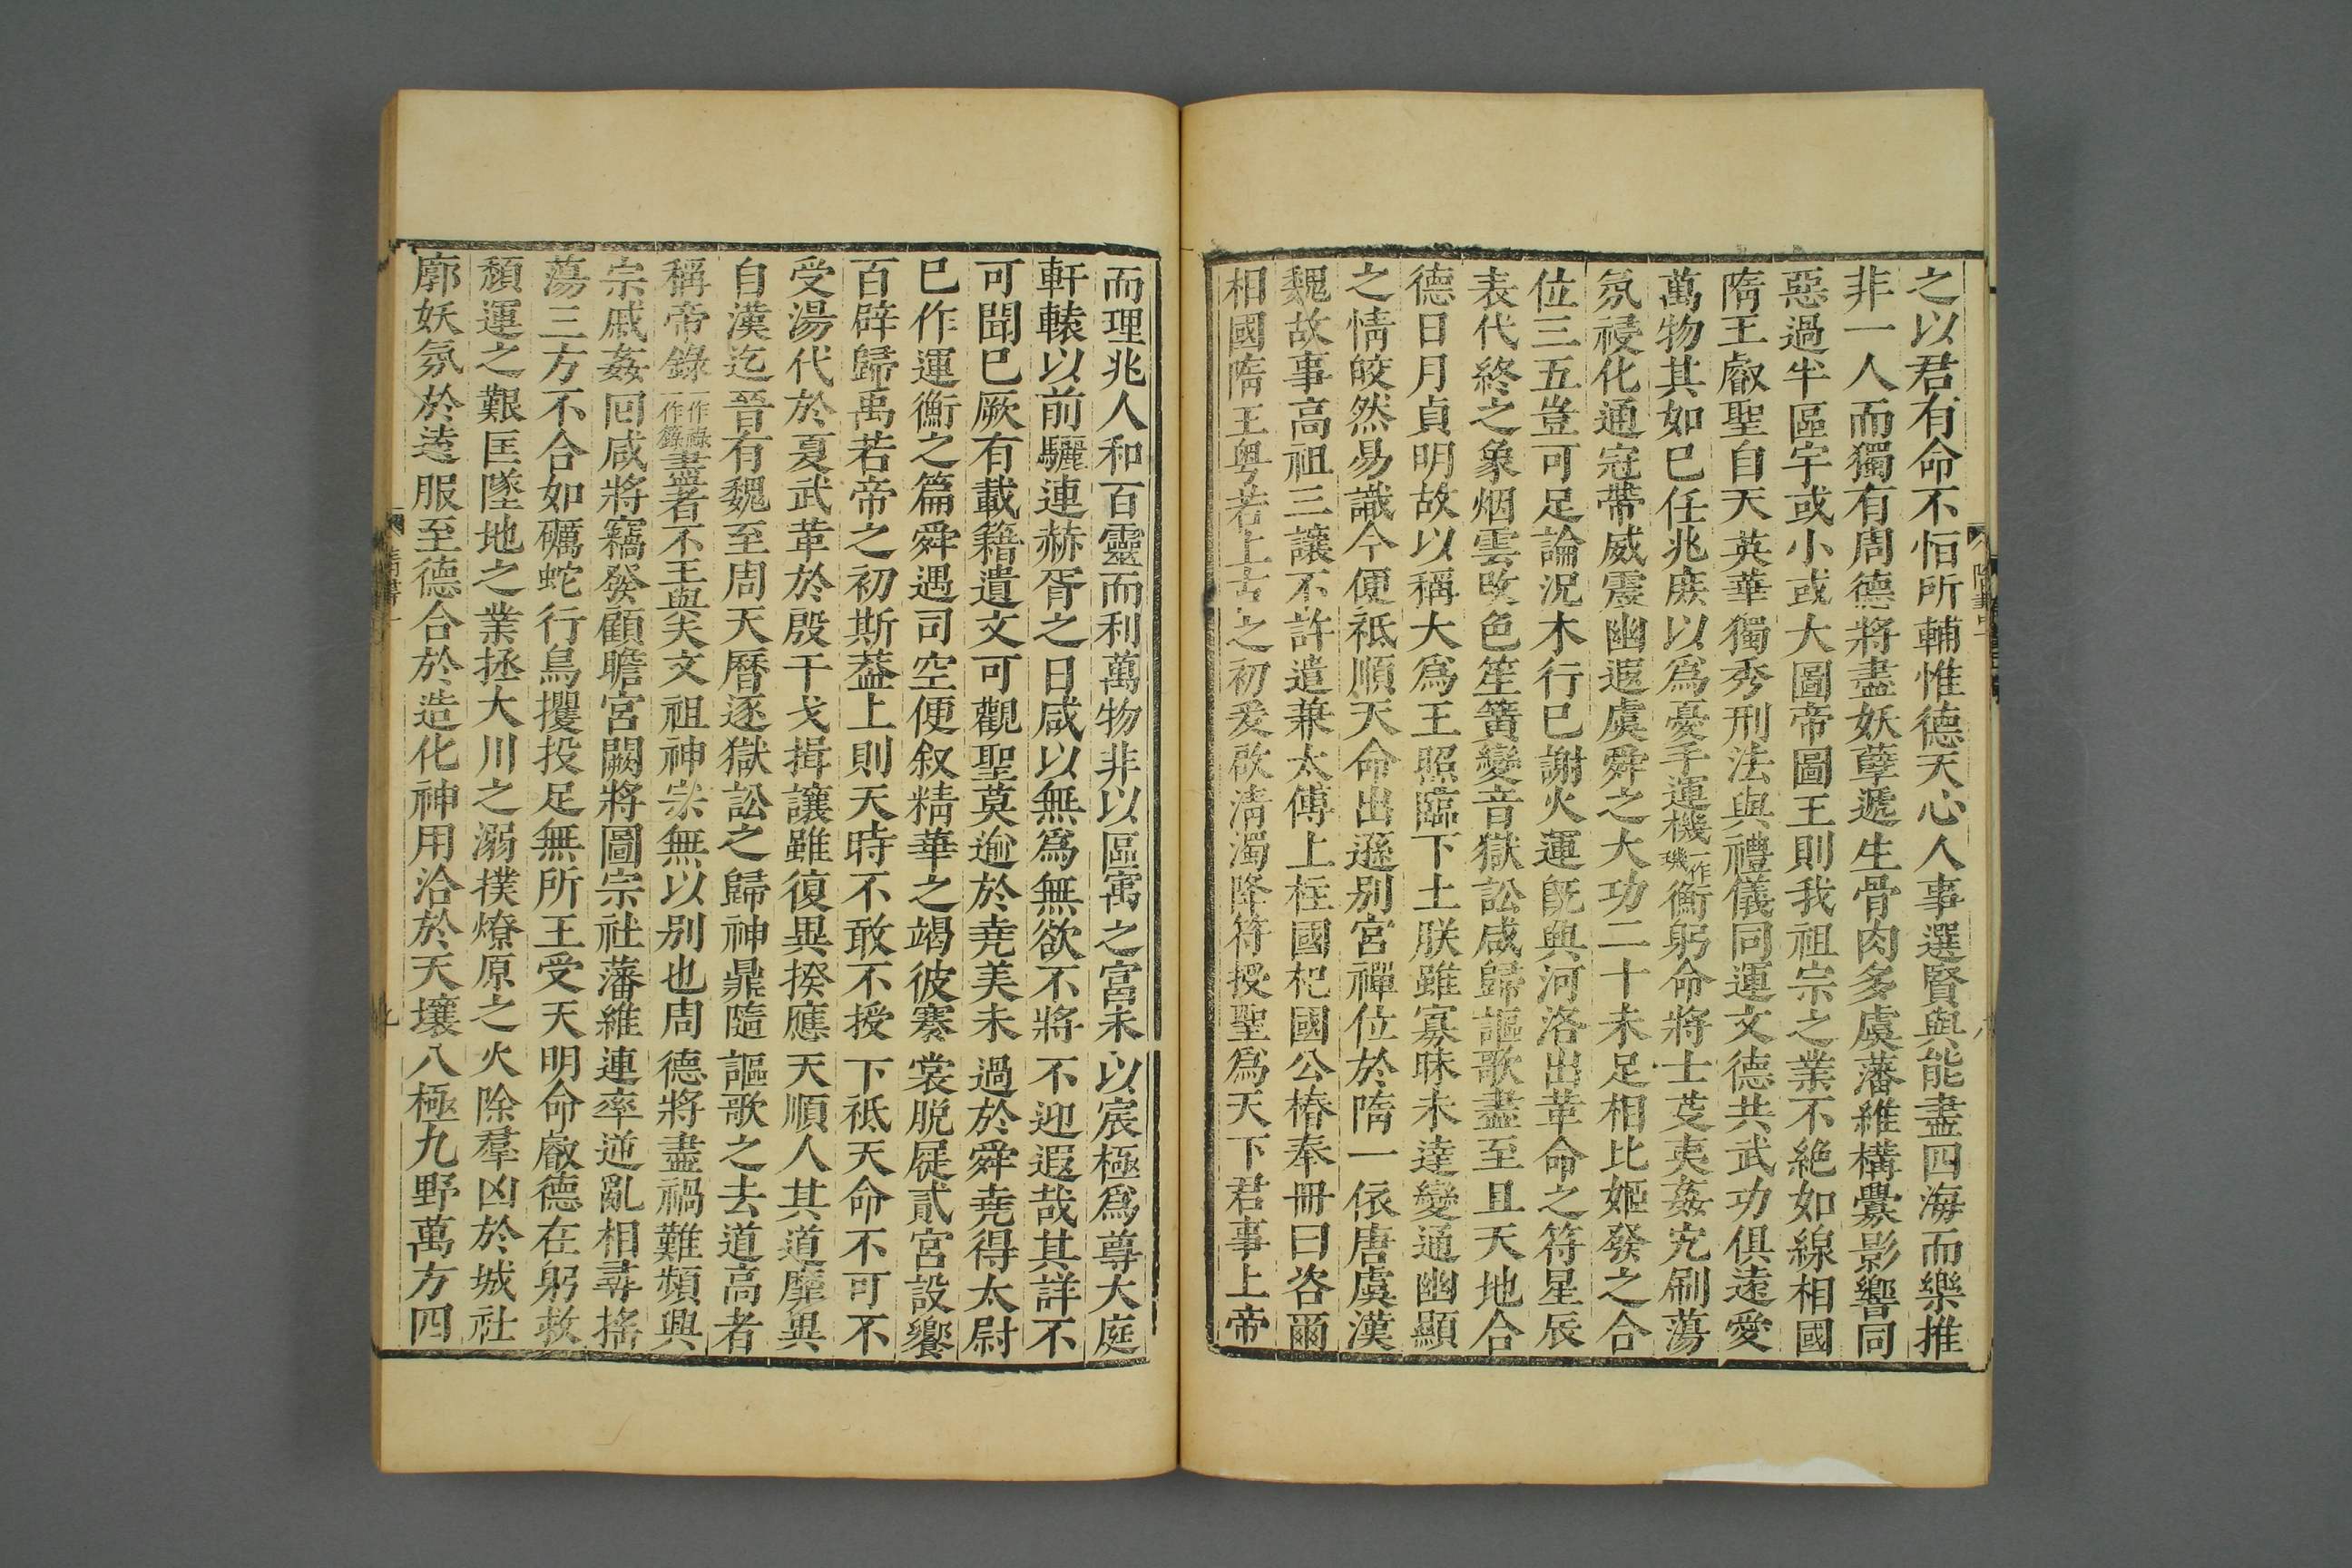 之以君有命不恒所輔惟德天心人事選賢與能盡四海而樂推
非一人而獨有周德將盡妖孽遞生骨肉多虞藩維構釁影響同
惡過半區宇或小或大圖帝圖王則我祖宗之業不絶如線相國
隋王叡聖自天英華獨秀刑法與禮儀同運文德共武功俱遠愛
萬物其如巳任兆庶以爲憂手運機一作璣衡躬命將士芟夷姦宄刷蕩
氛祲化通冠帶威震幽遐虞舜之大功二十未足相比姬發之合
位三五豈可足論況木行巳謝火運旣興河洛出革命之符星辰
表代終之象烟雲改色笙簧變音獄訟咸歸謳歌盡至且天地合
德日月貞明故以稱大爲王照臨下土朕雖寡昧未達變通幽顯
之情皎然易識今便祗順天命出遜别宮禪位於隋一依唐虞漢
魏故事高祖三讓不許遣兼太傅上柱國杞國公椿奉冊曰咨爾
相國隋王粤若上古之初爰啟清濁降符授聖爲天下君事上帝
而理兆人和百靈而利萬物非以區寓之富未以宸極爲尊大庭
軒轅以前驪連赫胥之日咸以無爲無欲不將不迎遐哉其詳不
可聞巳厥有載籍遺文可觀聖莫逾於堯美未過於舜堯得太尉
巳作運衡之篇舜遇司空便叙精華之竭彼褰裳脱屣貳宮設饗
百辟歸禹若帝之初斯葢上則天時不敢不授下祗天命不可不
受湯代於夏武革於殷干戈揖讓雖復異揆應天順人其道靡異
自漢迄晉有魏至周天曆逐獄訟之歸神鼎隨謳歌之去道高者
稱帝錄一作祿一作籙盡者不王與夫文祖神宗無以别也周德將盡禍難頻興
宗戚姦回咸將竊發顧瞻宮闕將圖宗社藩維連率逆亂相尋搖
蕩三方不合如礪蛇行鳥攫投足無所王受天明命叡德在躬救
頹運之艱匡墜地之業拯大川之溺撲燎原之火除羣凶於城社
廓妖氛於遠服至德合於造化神用洽於天壤八極九野萬方四